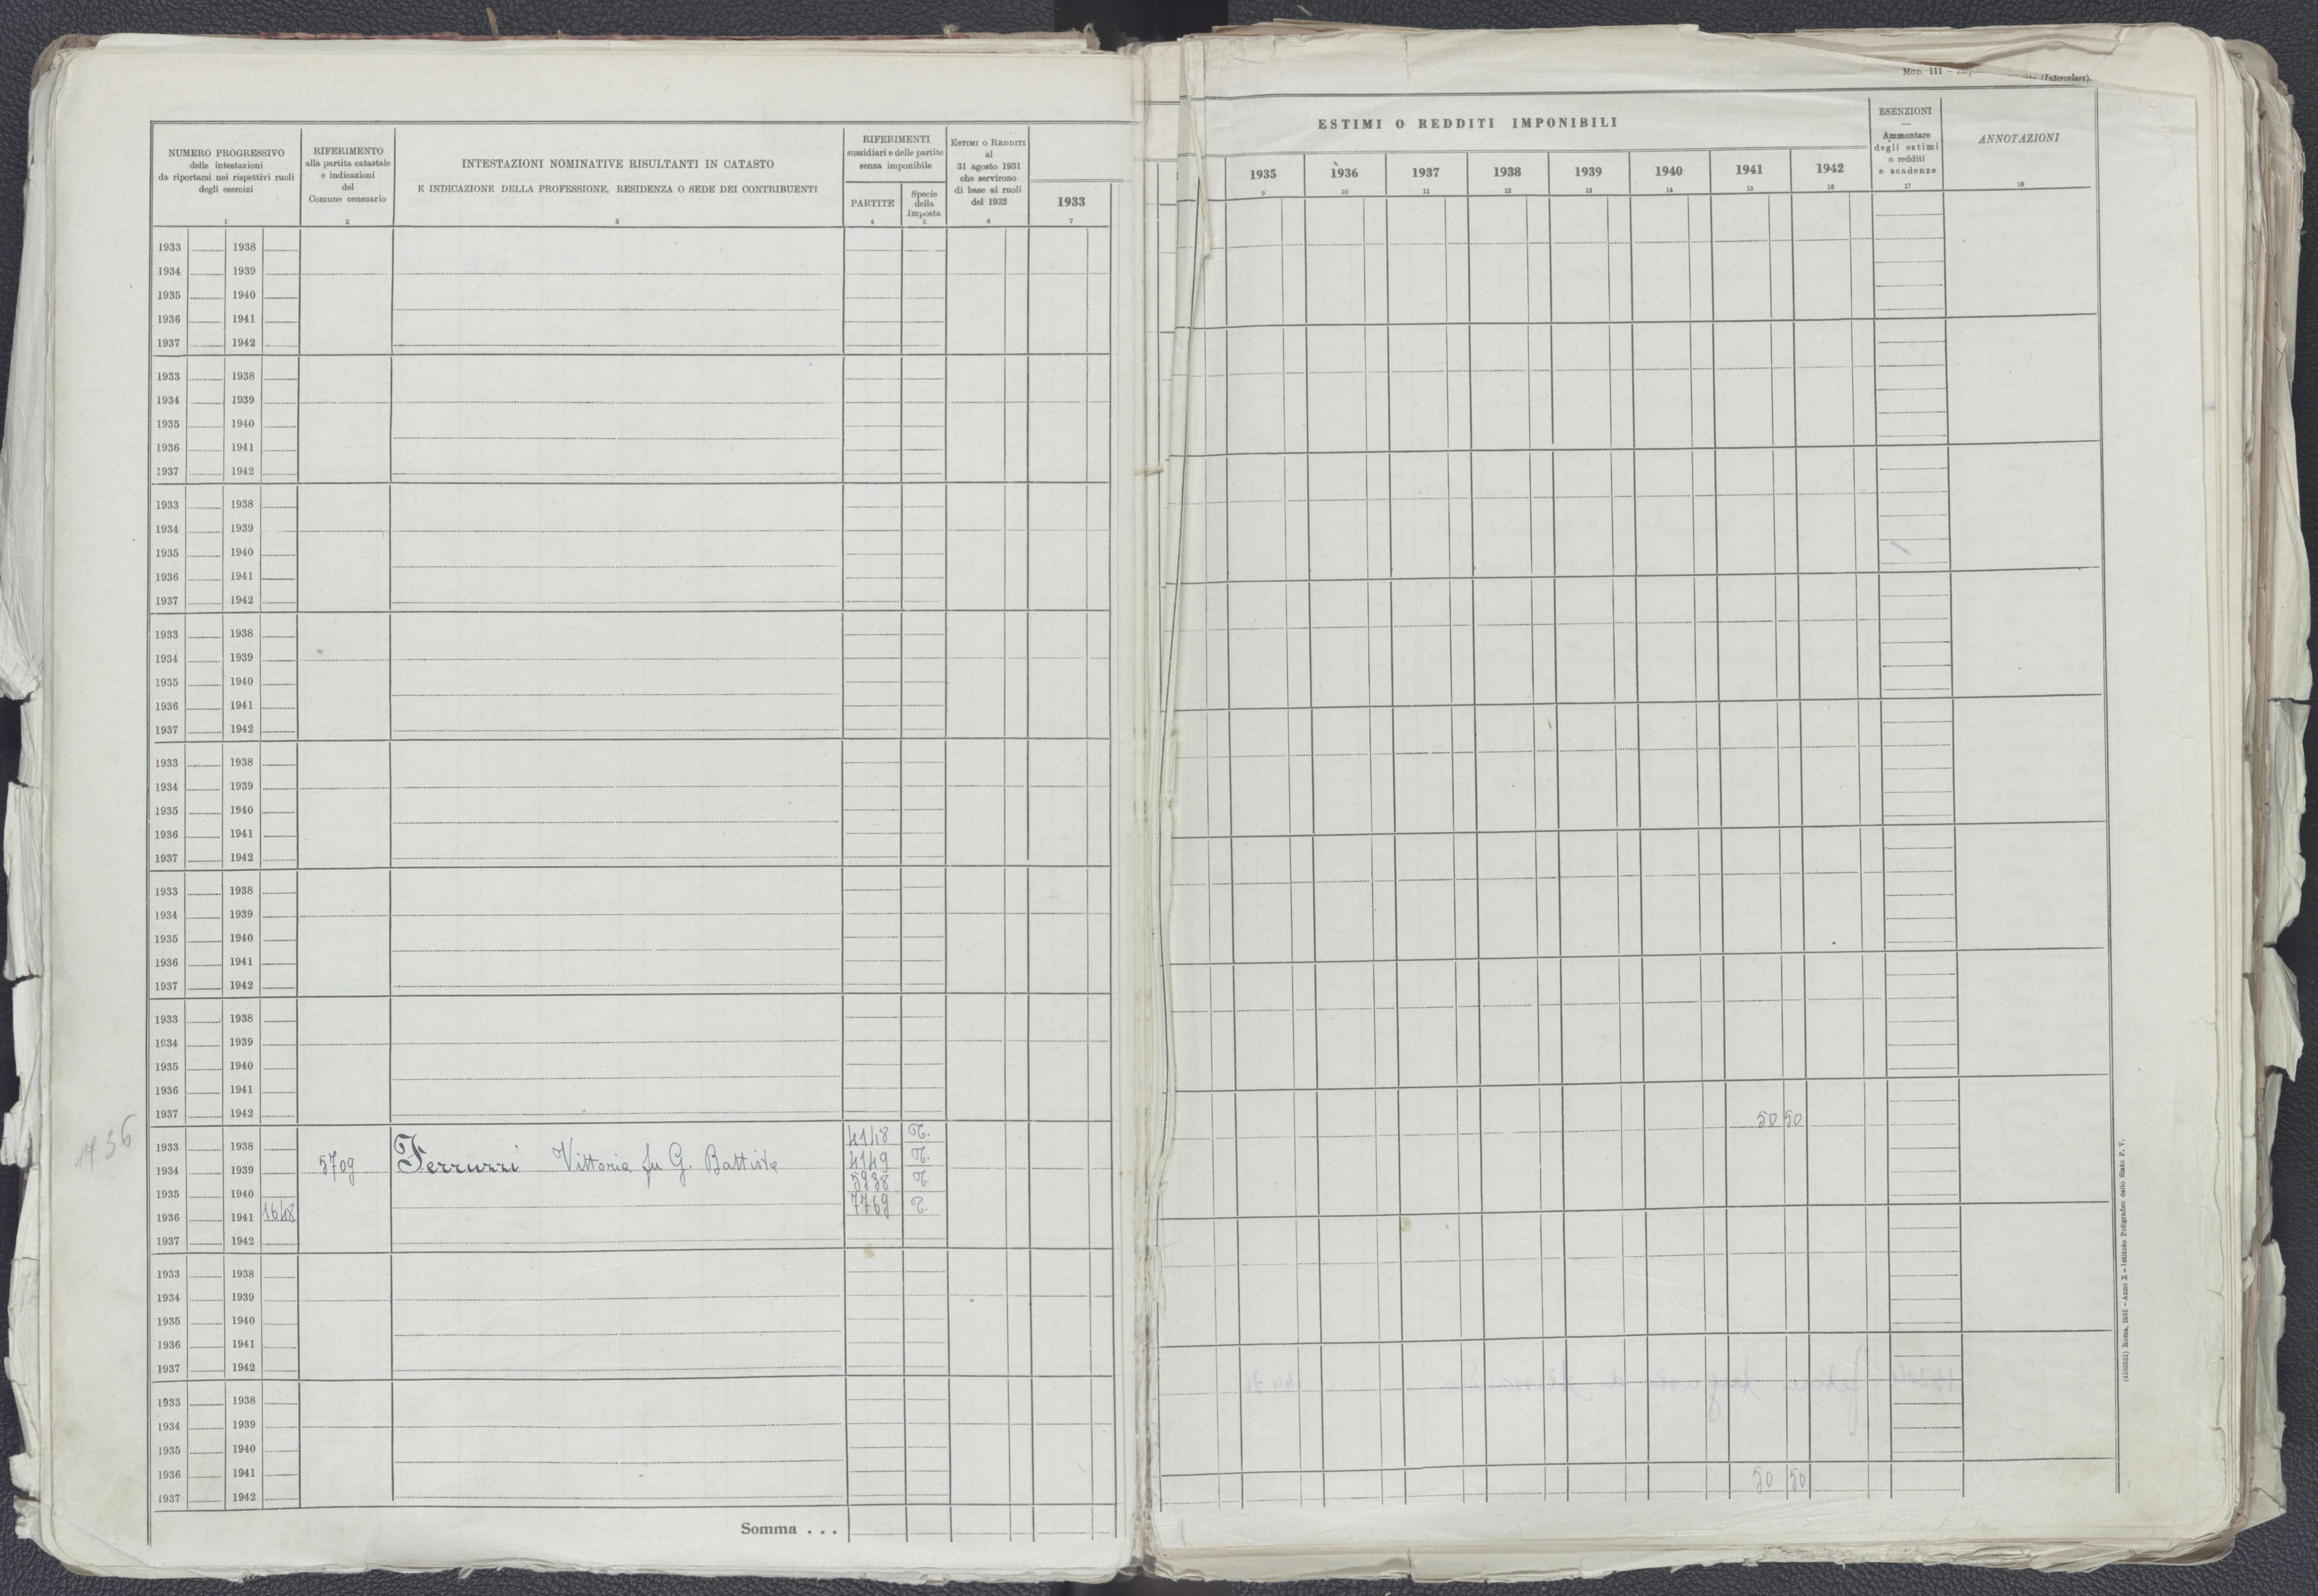 Mod. 111 – (Intercalare).
NUMERO PROGRESSIVO
delle intestazioni
da riportarsi nei rispettivi ruoli
degli esercizi
1
RIFERIMENTO
alla partita catastale
e indicazioni
del
Comune censuario
2
INTESTAZIONI NOMINATIVE RISULTANTI IN CATASTO
E INDICAZIONE DELLA PROFESSIONE, RESIDENZA O SEDE DEI CONTRIBUENTI
3
RIFERIMENTI
sussidiari e delle partite
senza imponibile
PARTITE
4
Specie
della
imposta
5
Estimi o Redditi
al
31 agosto 1931
che servirono
di base ai ruoli
del 1932
6
1933
7
ESTIMI O REDDITI IMPONIBILI
1935 1936 1937 1938 1939 1940 1941 1942
9 10 11 12 13 14 15 16
ESENZIONI
—
Ammontare
degli estimi
o redditi
e scadenze
17
ANNOTAZIONI
18
1933 1938
1934 1939
1935 1940
1936 1941
1937 1942
1933 1938
1934 1939
1935 1940
1936 1941
1937 1942
1933 1938
1934 1939
1935 1940
1936 1941
1937 1942
1933 1938
1934 1939
1935 1940
1936 1941
1937 1942
1933 1938
1934 1939
1935 1940
1936 1941
1937 1942
1933 1938
1934 1939
1935 1940
1936 1941
1937 1942
1933 1938
1934 1939
1935 1940
1936 1941
1937 1942
1736
1933 1938 4148 T. 50 50
1934 1939 5709 Ferruzzi Vittoria fu G. Battista 4149 T.
1935 1940 5938 T.
1936 1941 1648 7769 T.
1937 1942
1933 1938
1934 1939
1935 1940
1936 1941
1937 1942
1933 1938
1934 1939
1935 1940
1936 1941
1937 1942
Somma . . . 50 50
(4103531) Roma, 1931 – Anno X – Istituto Poligrafico dello Stato P. V.